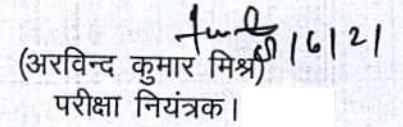 /6/21
(अरविन्द कुमार मिश्र)
परीक्षा नियंत्रक।